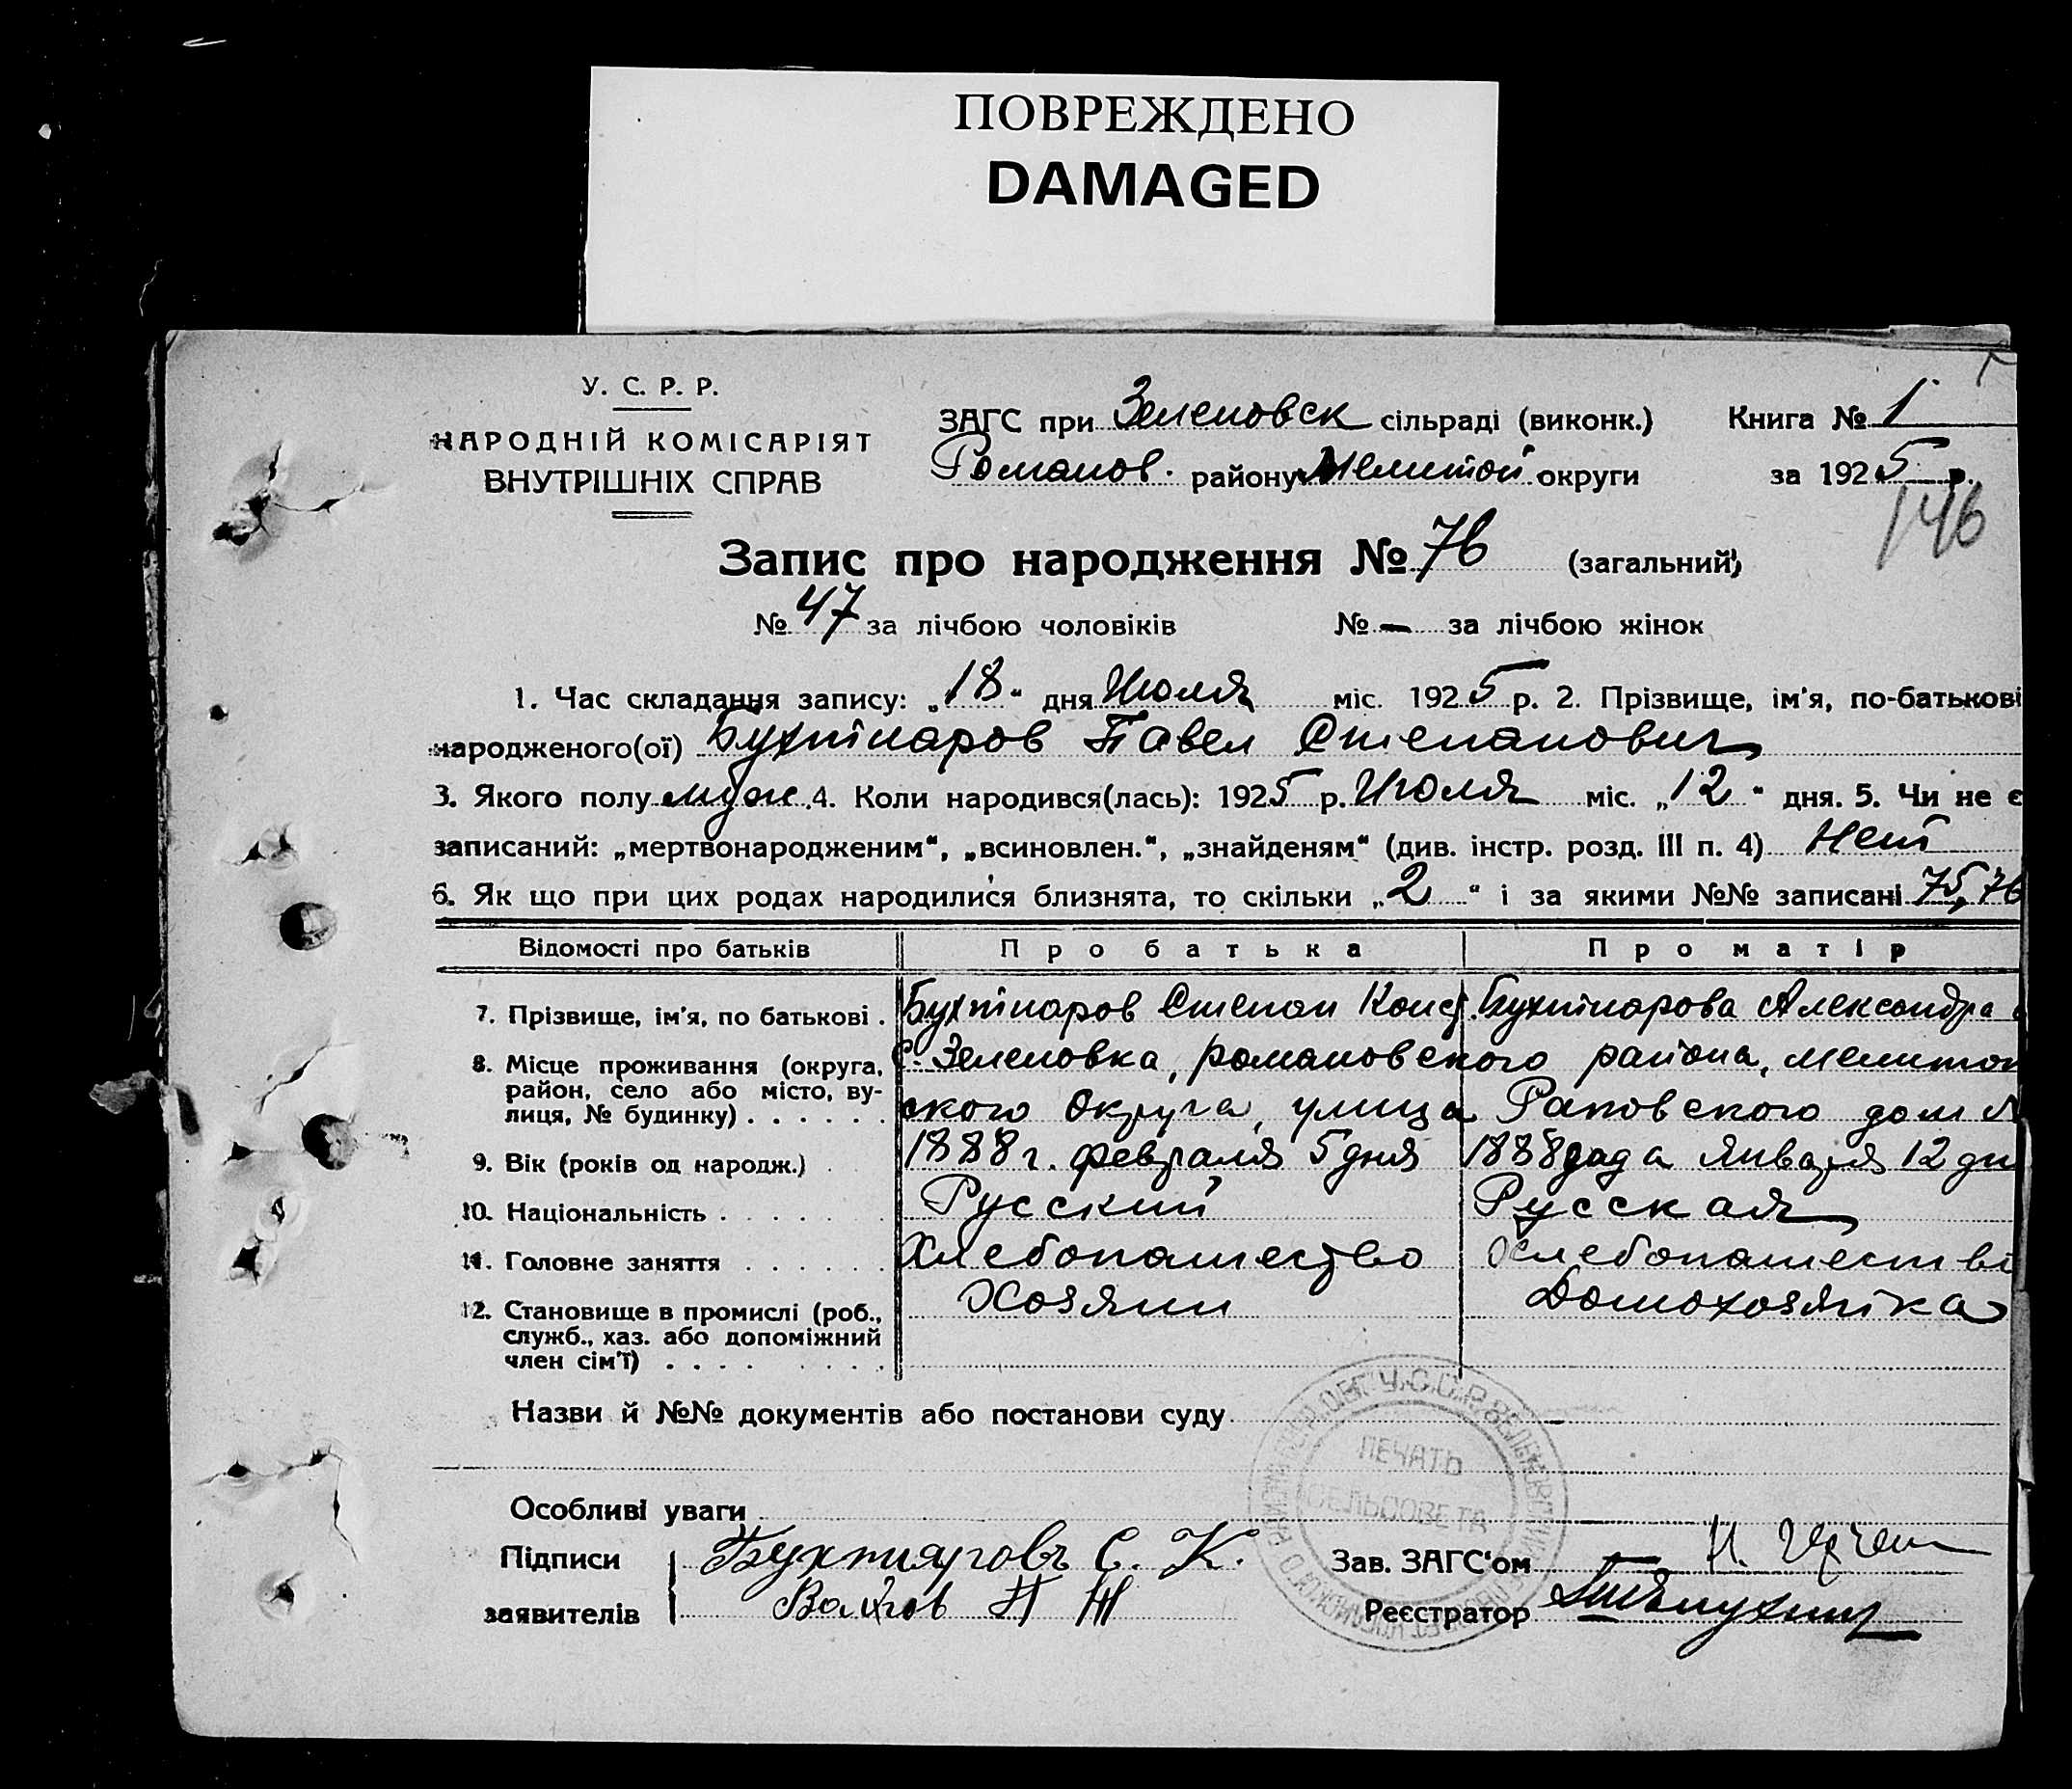 ПОВРЕЖДЕНО
DAMAGED
У. С. Р. Р.
НАРОДНІЙ КОМІСАРІЯТ
ВНУТРІШНІХ СПРАВ
ЗАГС при Зеленовск сільраді (виконк.) Книга № 1
Романов. району Мелитоп округи за 1925 р.
146
Запис про народження № 76 (загальний)
№ 47 за лічбою чоловіків № — за лічбою жінок
1. Час складання запису: „18“ дня Июля міс. 1925 р. 2. Прізвище, ім'я, по-батькові
народженого(ої) Бухтіиаров Павел Степанович
3. Якого полу муж. 4. Коли народився(лась): 1925 р. Июля міс. „12“ дня. 5. Чи не є
записаний: „мертвонародженим“, „всиновлен.“, „знайденям“ (див. інстр. розд. III п. 4) Нет
6. Як що при цих родах народилися близнята, то скільки „2“ і за якими №№ записані 75, 76
Відомості про батьків Про батька Про матір
7. Прізвище, ім'я, по батькові . Бухтіиаров Степан Конст. Бухтіиарова Александра
8. Місце проживання (округа, район, село або місто, вулиця, № будинку) . . . . . . С. Зеленовка, романовского района, мелитоп
ского округа, улица Раковского дом
9. Вік (років од народж.) . 1888 г. февраля 5 дня 1888 года Января 12 дн
10. Національність . . . . . . Русский Русская
11. Головне заняття . . . . . . Хлебопашество Хлебопашеств
12. Становище в промислі (роб., служб., хаз. або допоміжний член сім'ї) . . . . Хозяин Домохозяйка
Назви й №№ документів або постанови суду
ПЕЧАТЬ
СЕЛЬСОВЕТА
Особливі уваги
Підписи Бухтияровъ С. К. Зав. ЗАГС'ом
заявителів Реєстратор